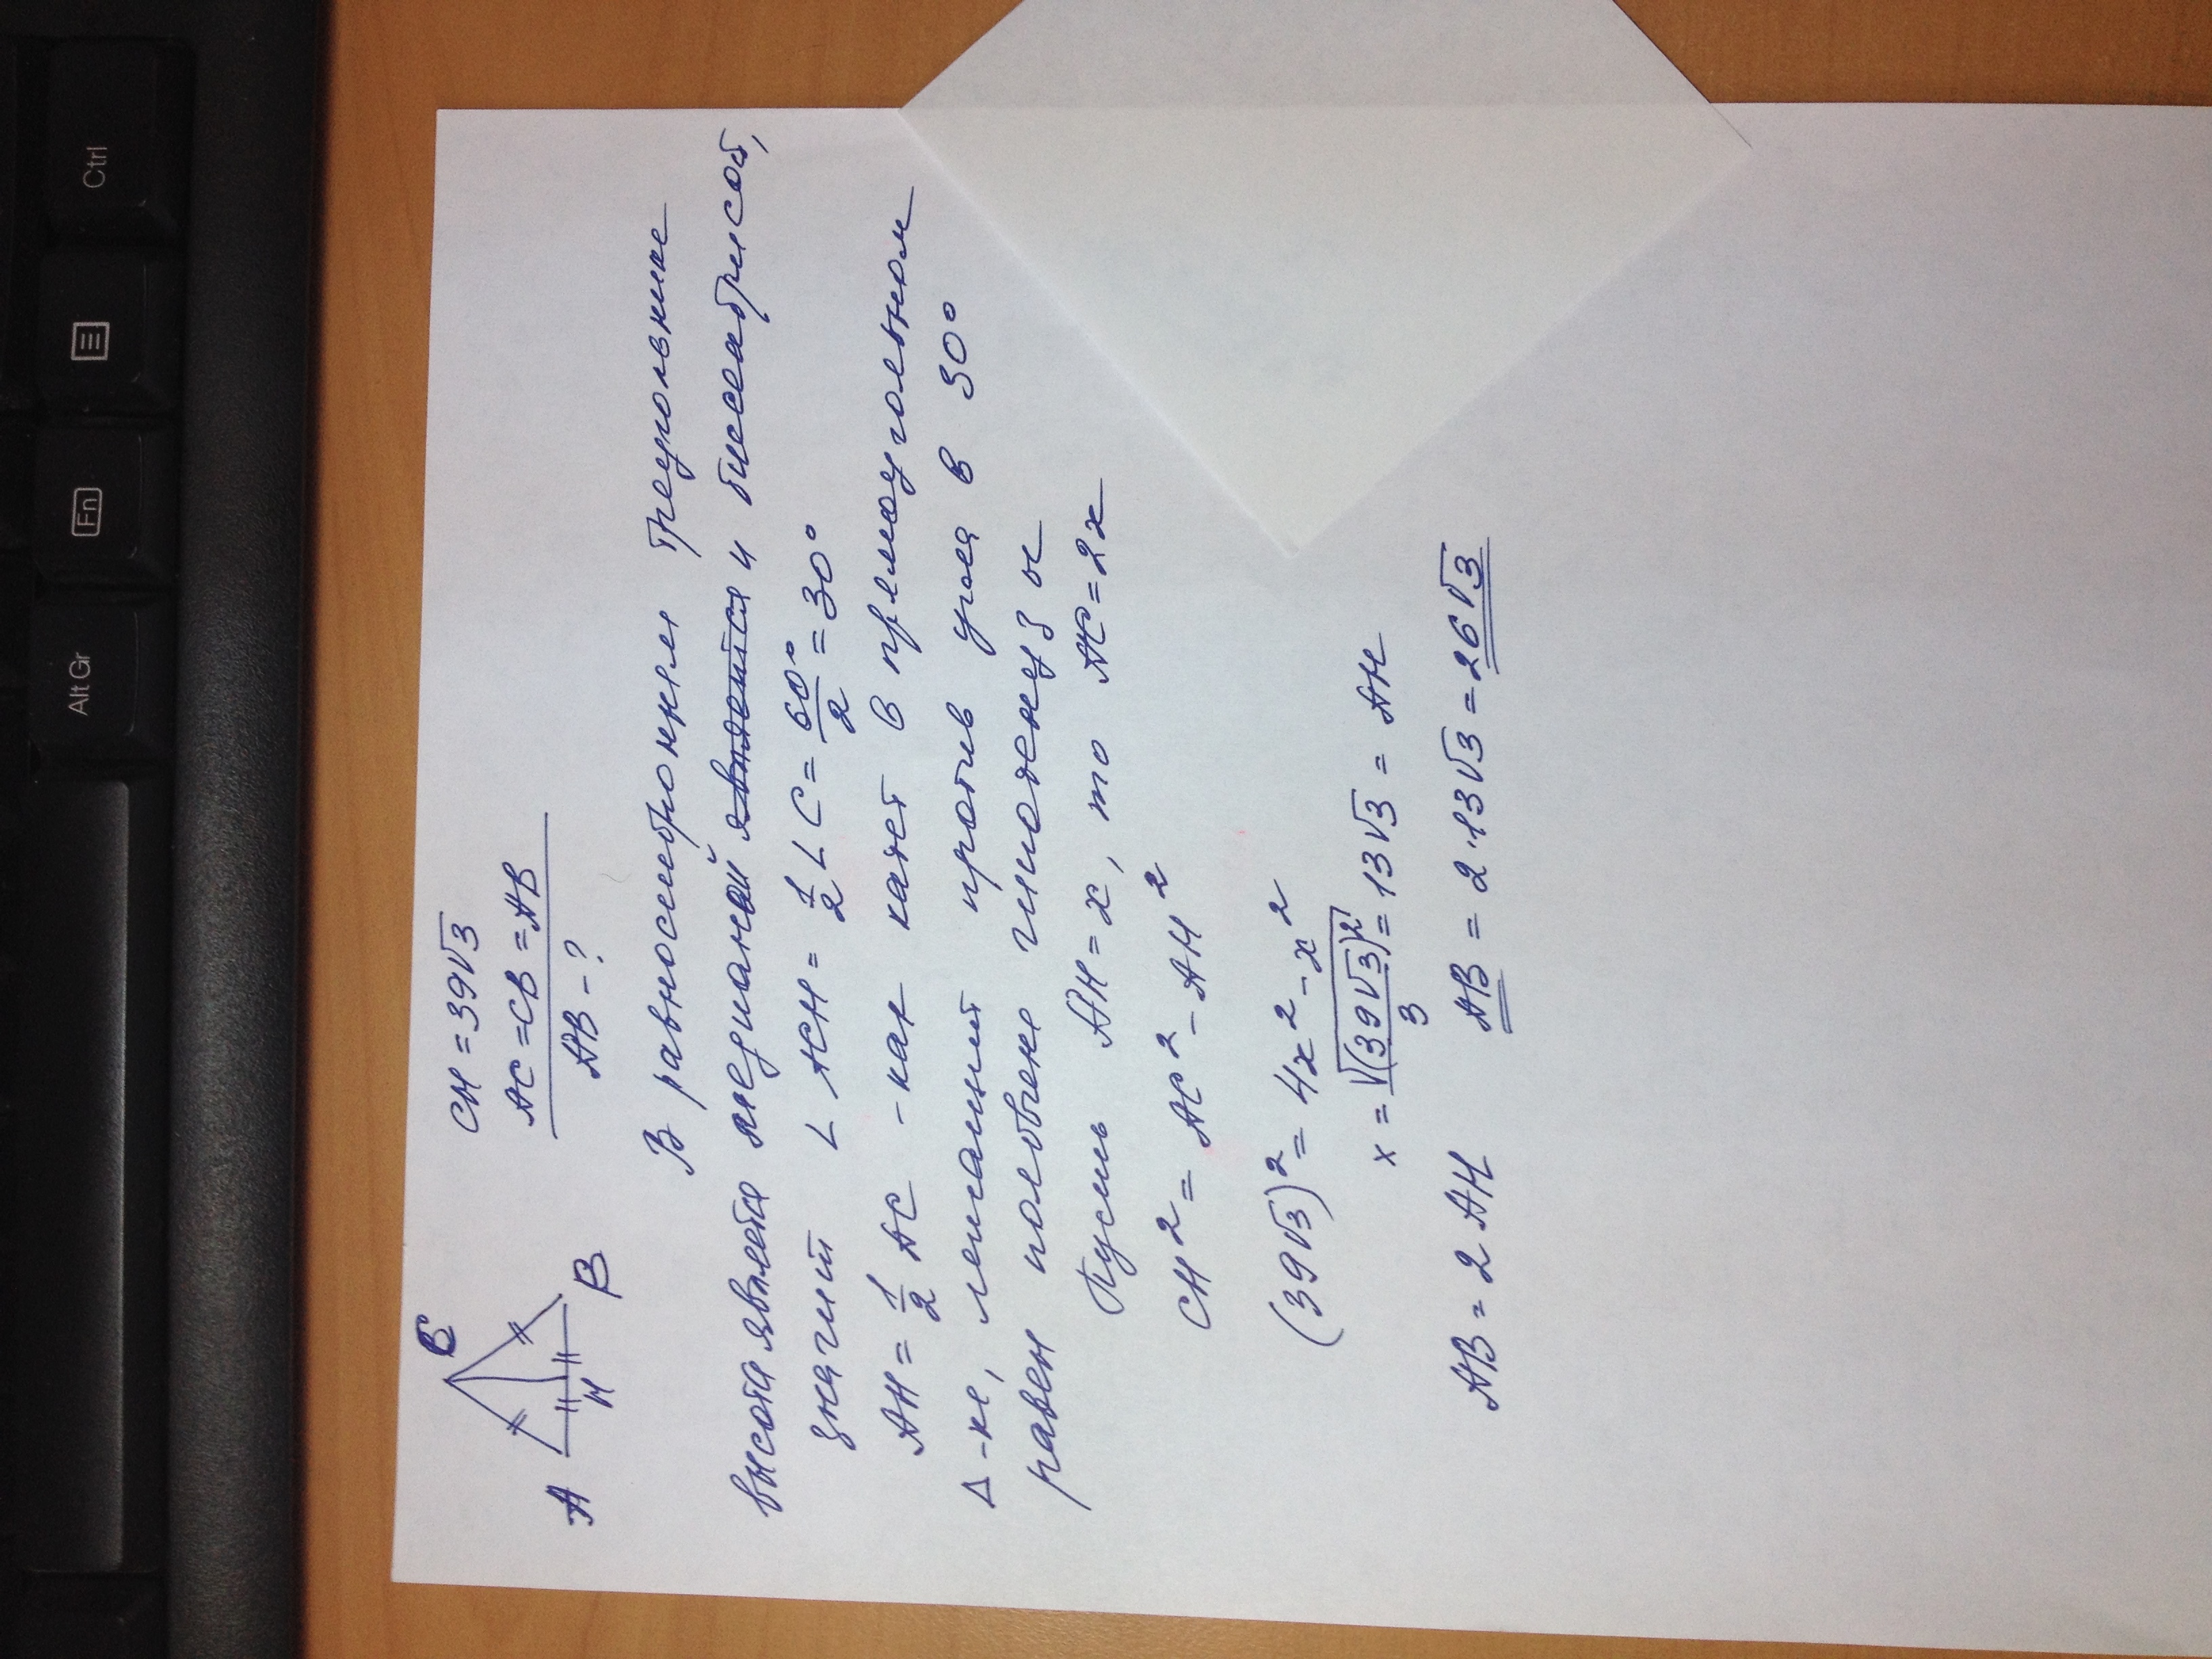 C
A
H
B
CH = 39√3
AC = CB = AB
AB - ?
В равностороннем треугольнике
высота является медианой и биссектрисой,
значит ∠ ACH = 1/2 ∠ C = 60°/2 = 30°
AH = 1/2 AC - как катет в прямоугольном
Δ-ке, лежащий против угла в 30°
равен половине гипотенузы
Пусть AH = x, то AC = 2x
CH² = AC² - AH²
(39√3)² = 4x² - x²
x = √(39√3)²/3 = 13√3 = AH
AB = 2 AH AB = 2·13√3 = 26√3
Alt Gr
Fn
Ctrl